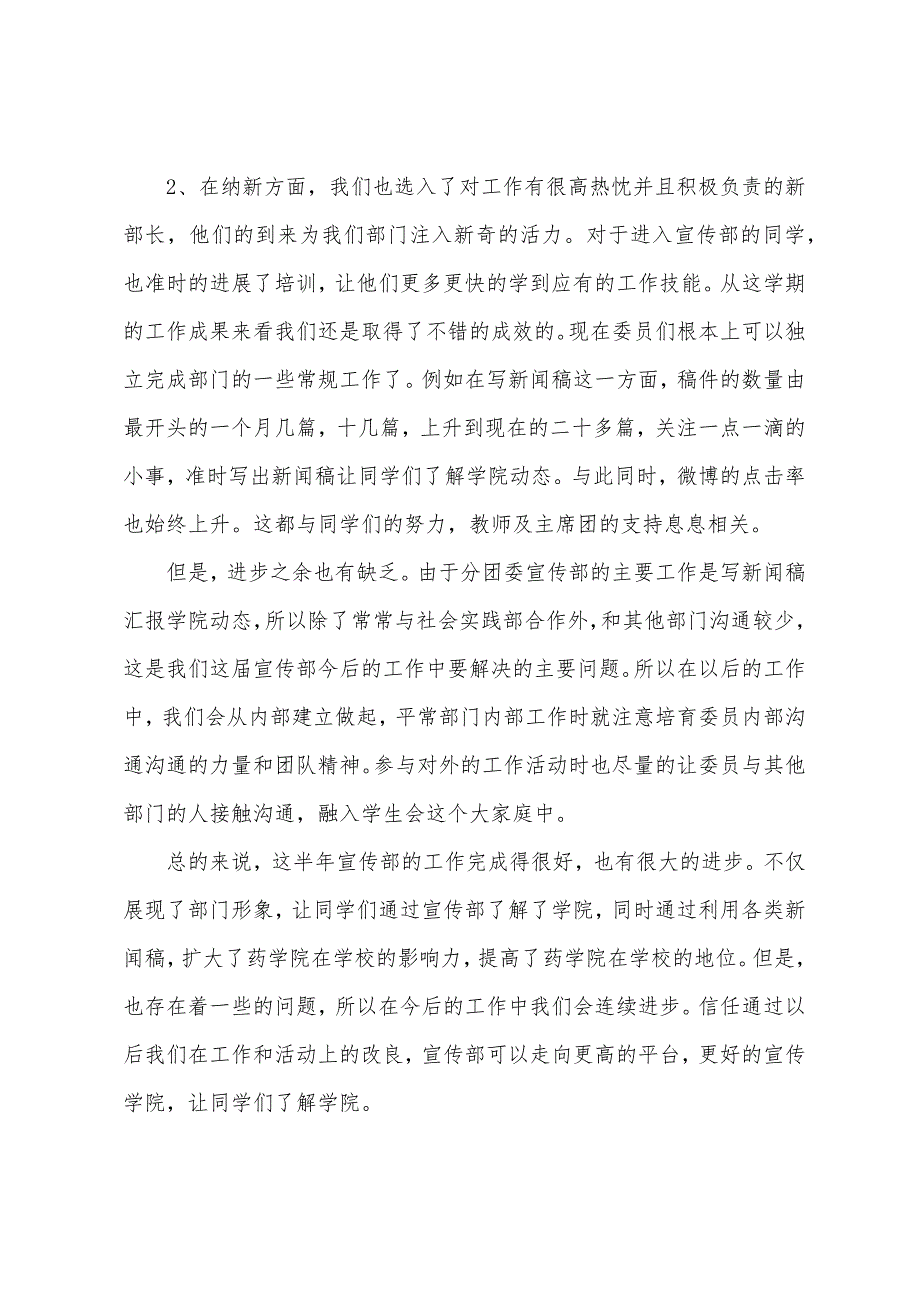 2、在纳新方面，我们也选入了对工作有很高热忱并且积极负责的新
部长，他们的到来为我们部门注入新奇的活力。对于进入宣传部的同学，
也准时的进展了培训，让他们更多更快的学到应有的工作技能。从这学期
的工作成果来看我们还是取得了不错的成效的。现在委员们根本上可以独
立完成部门的一些常规工作了。例如在写新闻稿这一方面，稿件的数量由
最开头的一个月几篇，十几篇，上升到现在的二十多篇，关注一点一滴的
小事，准时写出新闻稿让同学们了解学院动态。与此同时，微博的点击率
也始终上升。这都与同学们的努力，教师及主席团的支持息息相关。
但是，进步之余也有缺乏。由于分团委宣传部的主要工作是写新闻稿
汇报学院动态，所以除了常常与社会实践部合作外，和其他部门沟通较少，
这是我们这届宣传部今后的工作中要解决的主要问题。所以在以后的工作
中，我们会从内部建立做起，平常部门内部工作时就注意培育委员内部沟
通沟通的力量和团队精神。参与对外的工作活动时也尽量的让委员与其他
部门的人接触沟通，融入学生会这个大家庭中。
总的来说，这半年宣传部的工作完成得很好，也有很大的进步。不仅
展现了部门形象，让同学们通过宣传部了解了学院，同时通过利用各类新
闻稿，扩大了药学院在学校的影响力，提高了药学院在学校的地位。但是，
也存在着一些的问题，所以在今后的工作中我们会连续进步。信任通过以
后我们在工作和活动上的改良，宣传部可以走向更高的平台，更好的宣传
学院，让同学们了解学院。